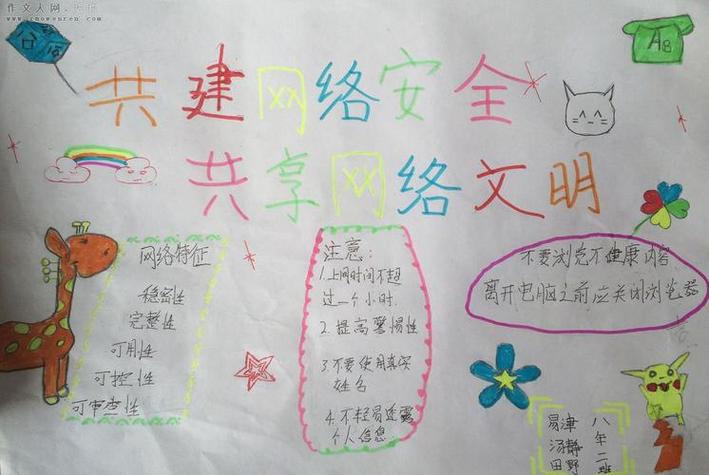 作文人网
共建网络安全
共享网络文明
AB
网络特征
稳密性
完整性
可用性
可控性
可审查性
注意:
1.上网时间不超
过一个小时.
2.提高警惕性
3.不要使用真实
姓名
4.不轻易透露
个人信息
不要浏览不健康内容
离开电脑之前应关闭浏览器
八年二班
易津
汤静
田野